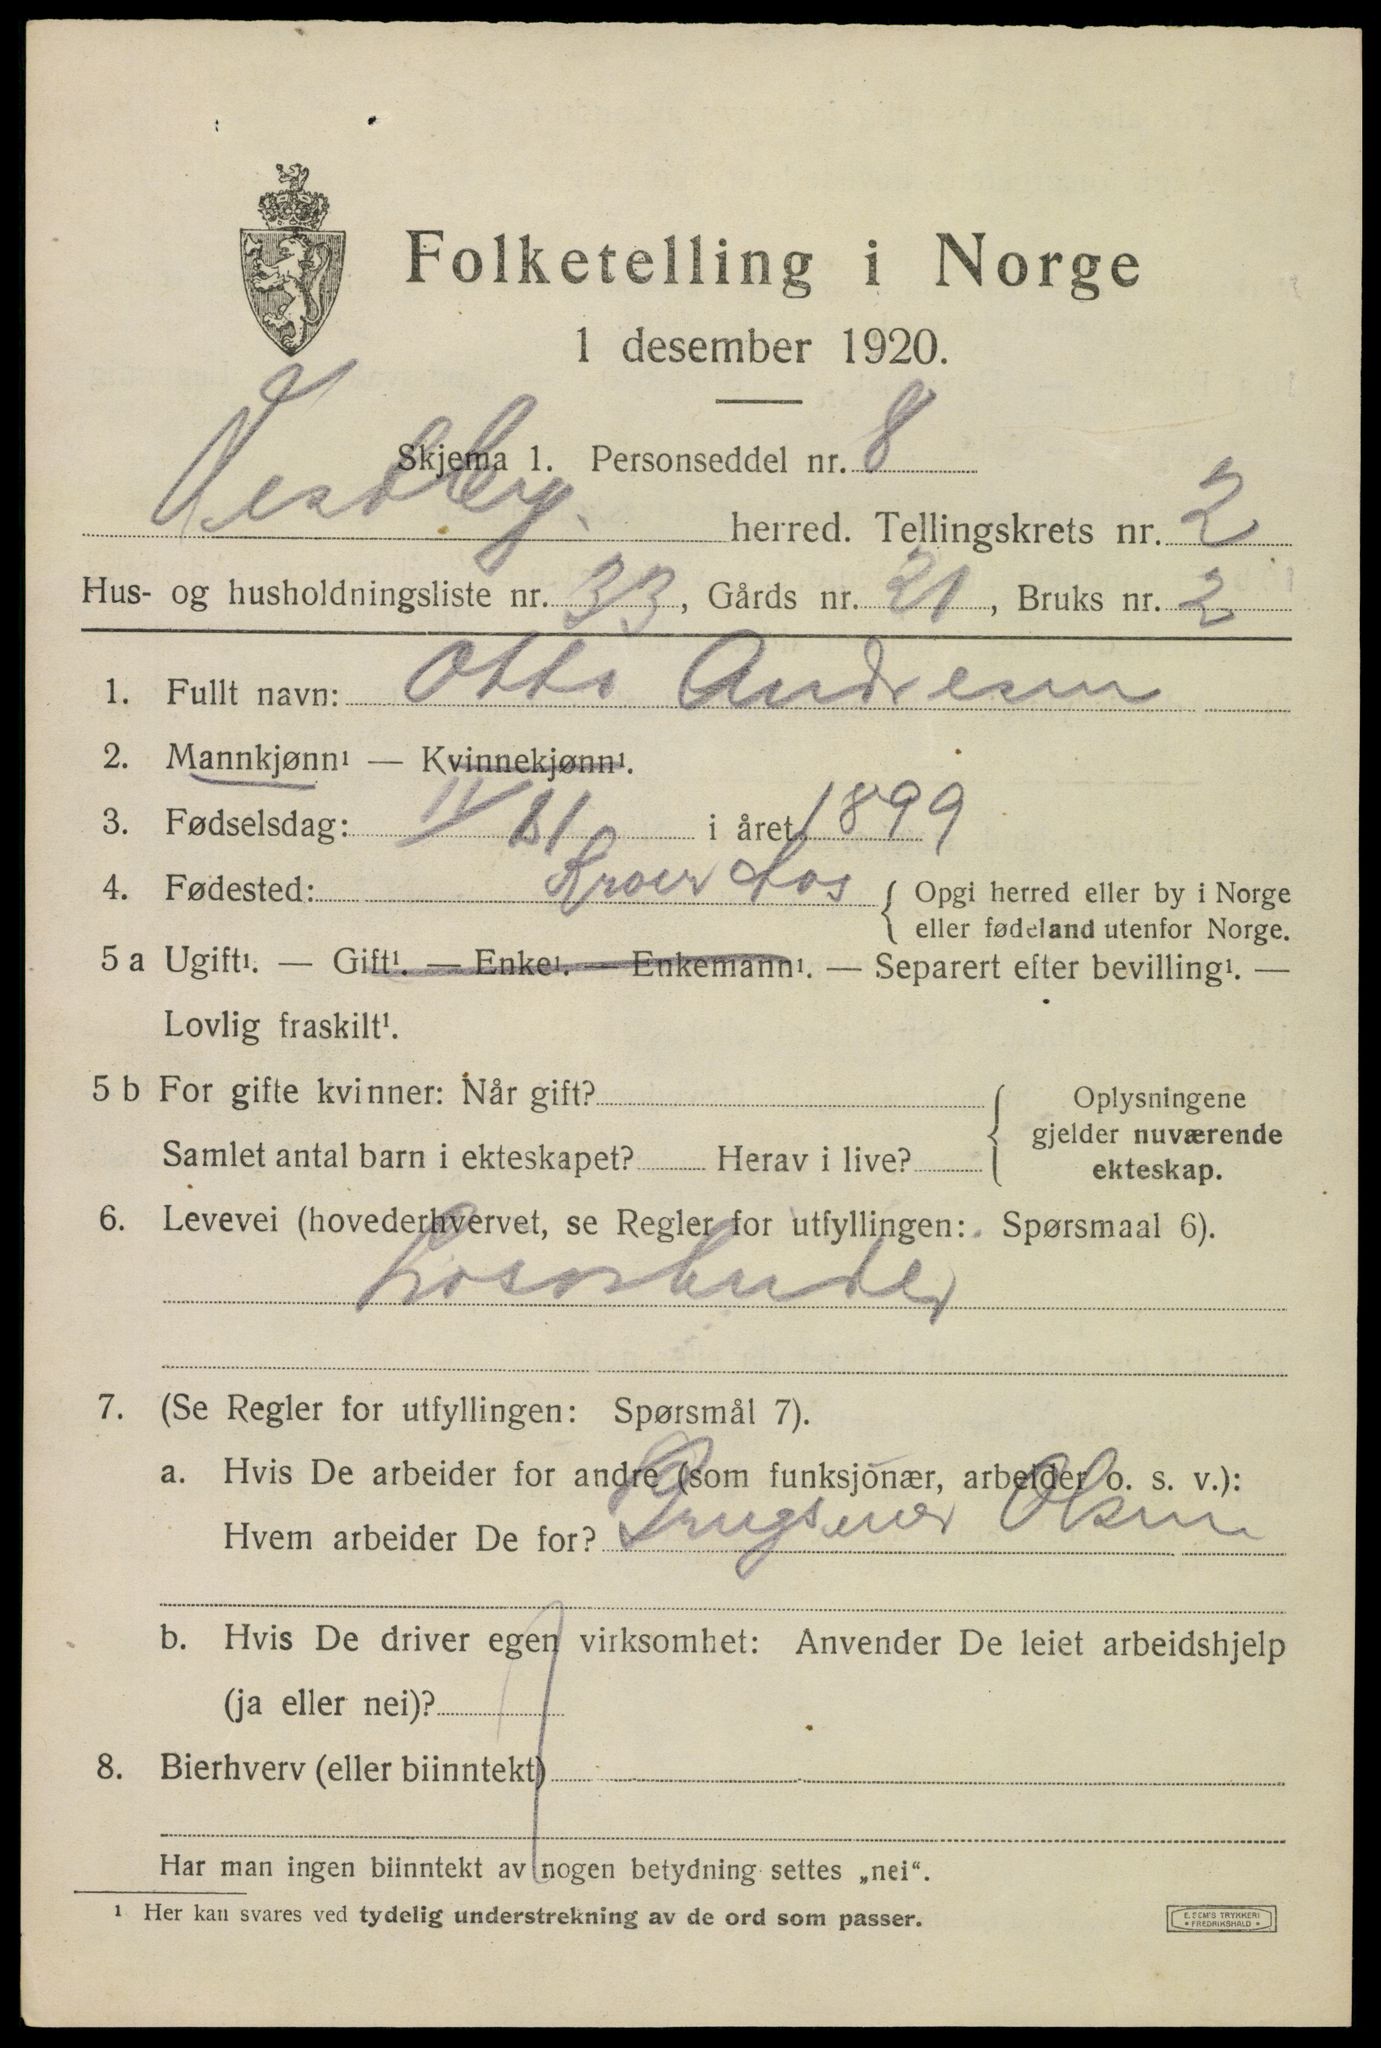 Folketelling i Norge
1 desember 1920.
Skjema 1. Personseddel nr. 8
Vestby. herred. Tellingskrets nr. 2
Hus- og husholdningsliste nr. 33, Gårds nr. 21, Bruks nr. 2
1. Fullt navn: Otto Andresen
2. Mannkjønn¹ — Kvinnekjønn¹.
3. Fødselsdag: i året 1899
4. Fødested: Kroer Aas { Opgi herred eller by i Norge
eller fødeland utenfor Norge.
5 a Ugift¹. — Gift¹. — Enke¹. — Enkemann¹. — Separert efter bevilling¹. —
Lovlig fraskilt¹.
5 b For gifte kvinner: Når gift? { Oplysningene
gjelder nuværende
Samlet antal barn i ekteskapet? Herav i live?
ekteskap.
6. Levevei (hovederhvervet, se Regler for utfyllingen: Spørsmaal 6).
7. (Se Regler for utfyllingen: Spørsmål 7).
a. Hvis De arbeider for andre (som funksjonær, arbeider o. s. v.):
Hvem arbeider De for? Olsen
b. Hvis De driver egen virksomhet: Anvender De leiet arbeidshjelp
(ja eller nei)?
8. Bierhverv (eller biinntekt)
Har man ingen biinntekt av nogen betydning settes „nei“.
¹ Her kan svares ved tydelig understrekning av de ord som passer.
E. SEM'S TRYKKERI
• FREDRIKSHALD •